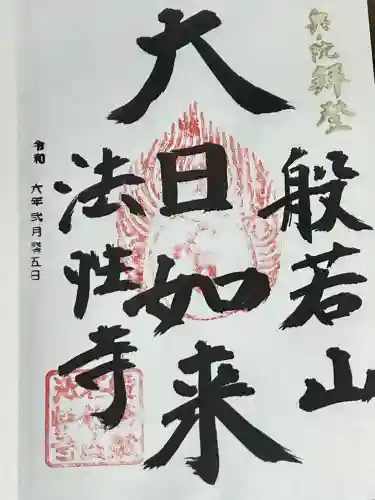 奥の院拝登
般若山
大日如来
法性寺
令和 六年 弐月 五日